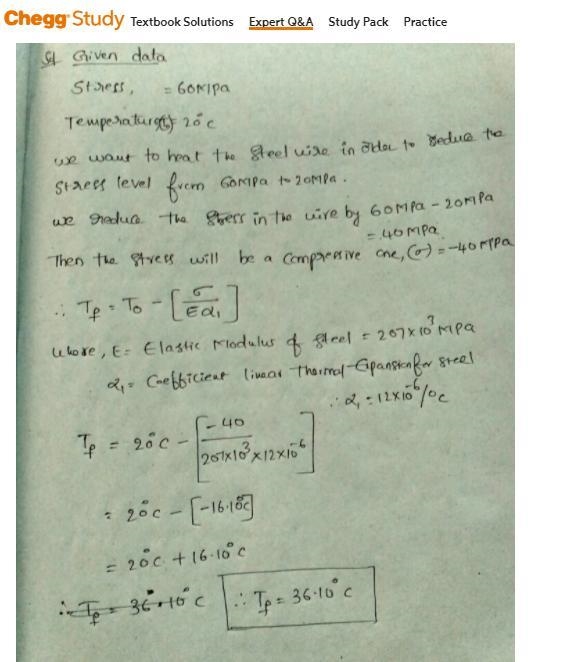 Chegg Study Textbook Solutions Expert Q&A Study Pack Practice
Given data
Stress, = 60MPa
Temperature 20°c
we want to heat the steel wire in order to reduce the
stress level from 60MPa to 20MPa.
we reduce the stress in the wire by 60MPa - 20MPa
= 40MPa
Then the stress will be a compressive one, (σ) = -40MPa
∴ Tf = To - [σ/Eα1]
where, E = Elastic Modulus of steel = 207x10³ MPa
α1 = Coefficient linear thermal-Expansion for steel
∴ α1 = 12x10⁻⁶/°c
Tf = 20°c - [-40/207x10³x12x10⁻⁶]
= 20°c - [-16.10°c]
= 20°c + 16.10°c
∴ Tf = 36.10°c ∴ Tf = 36.10°c